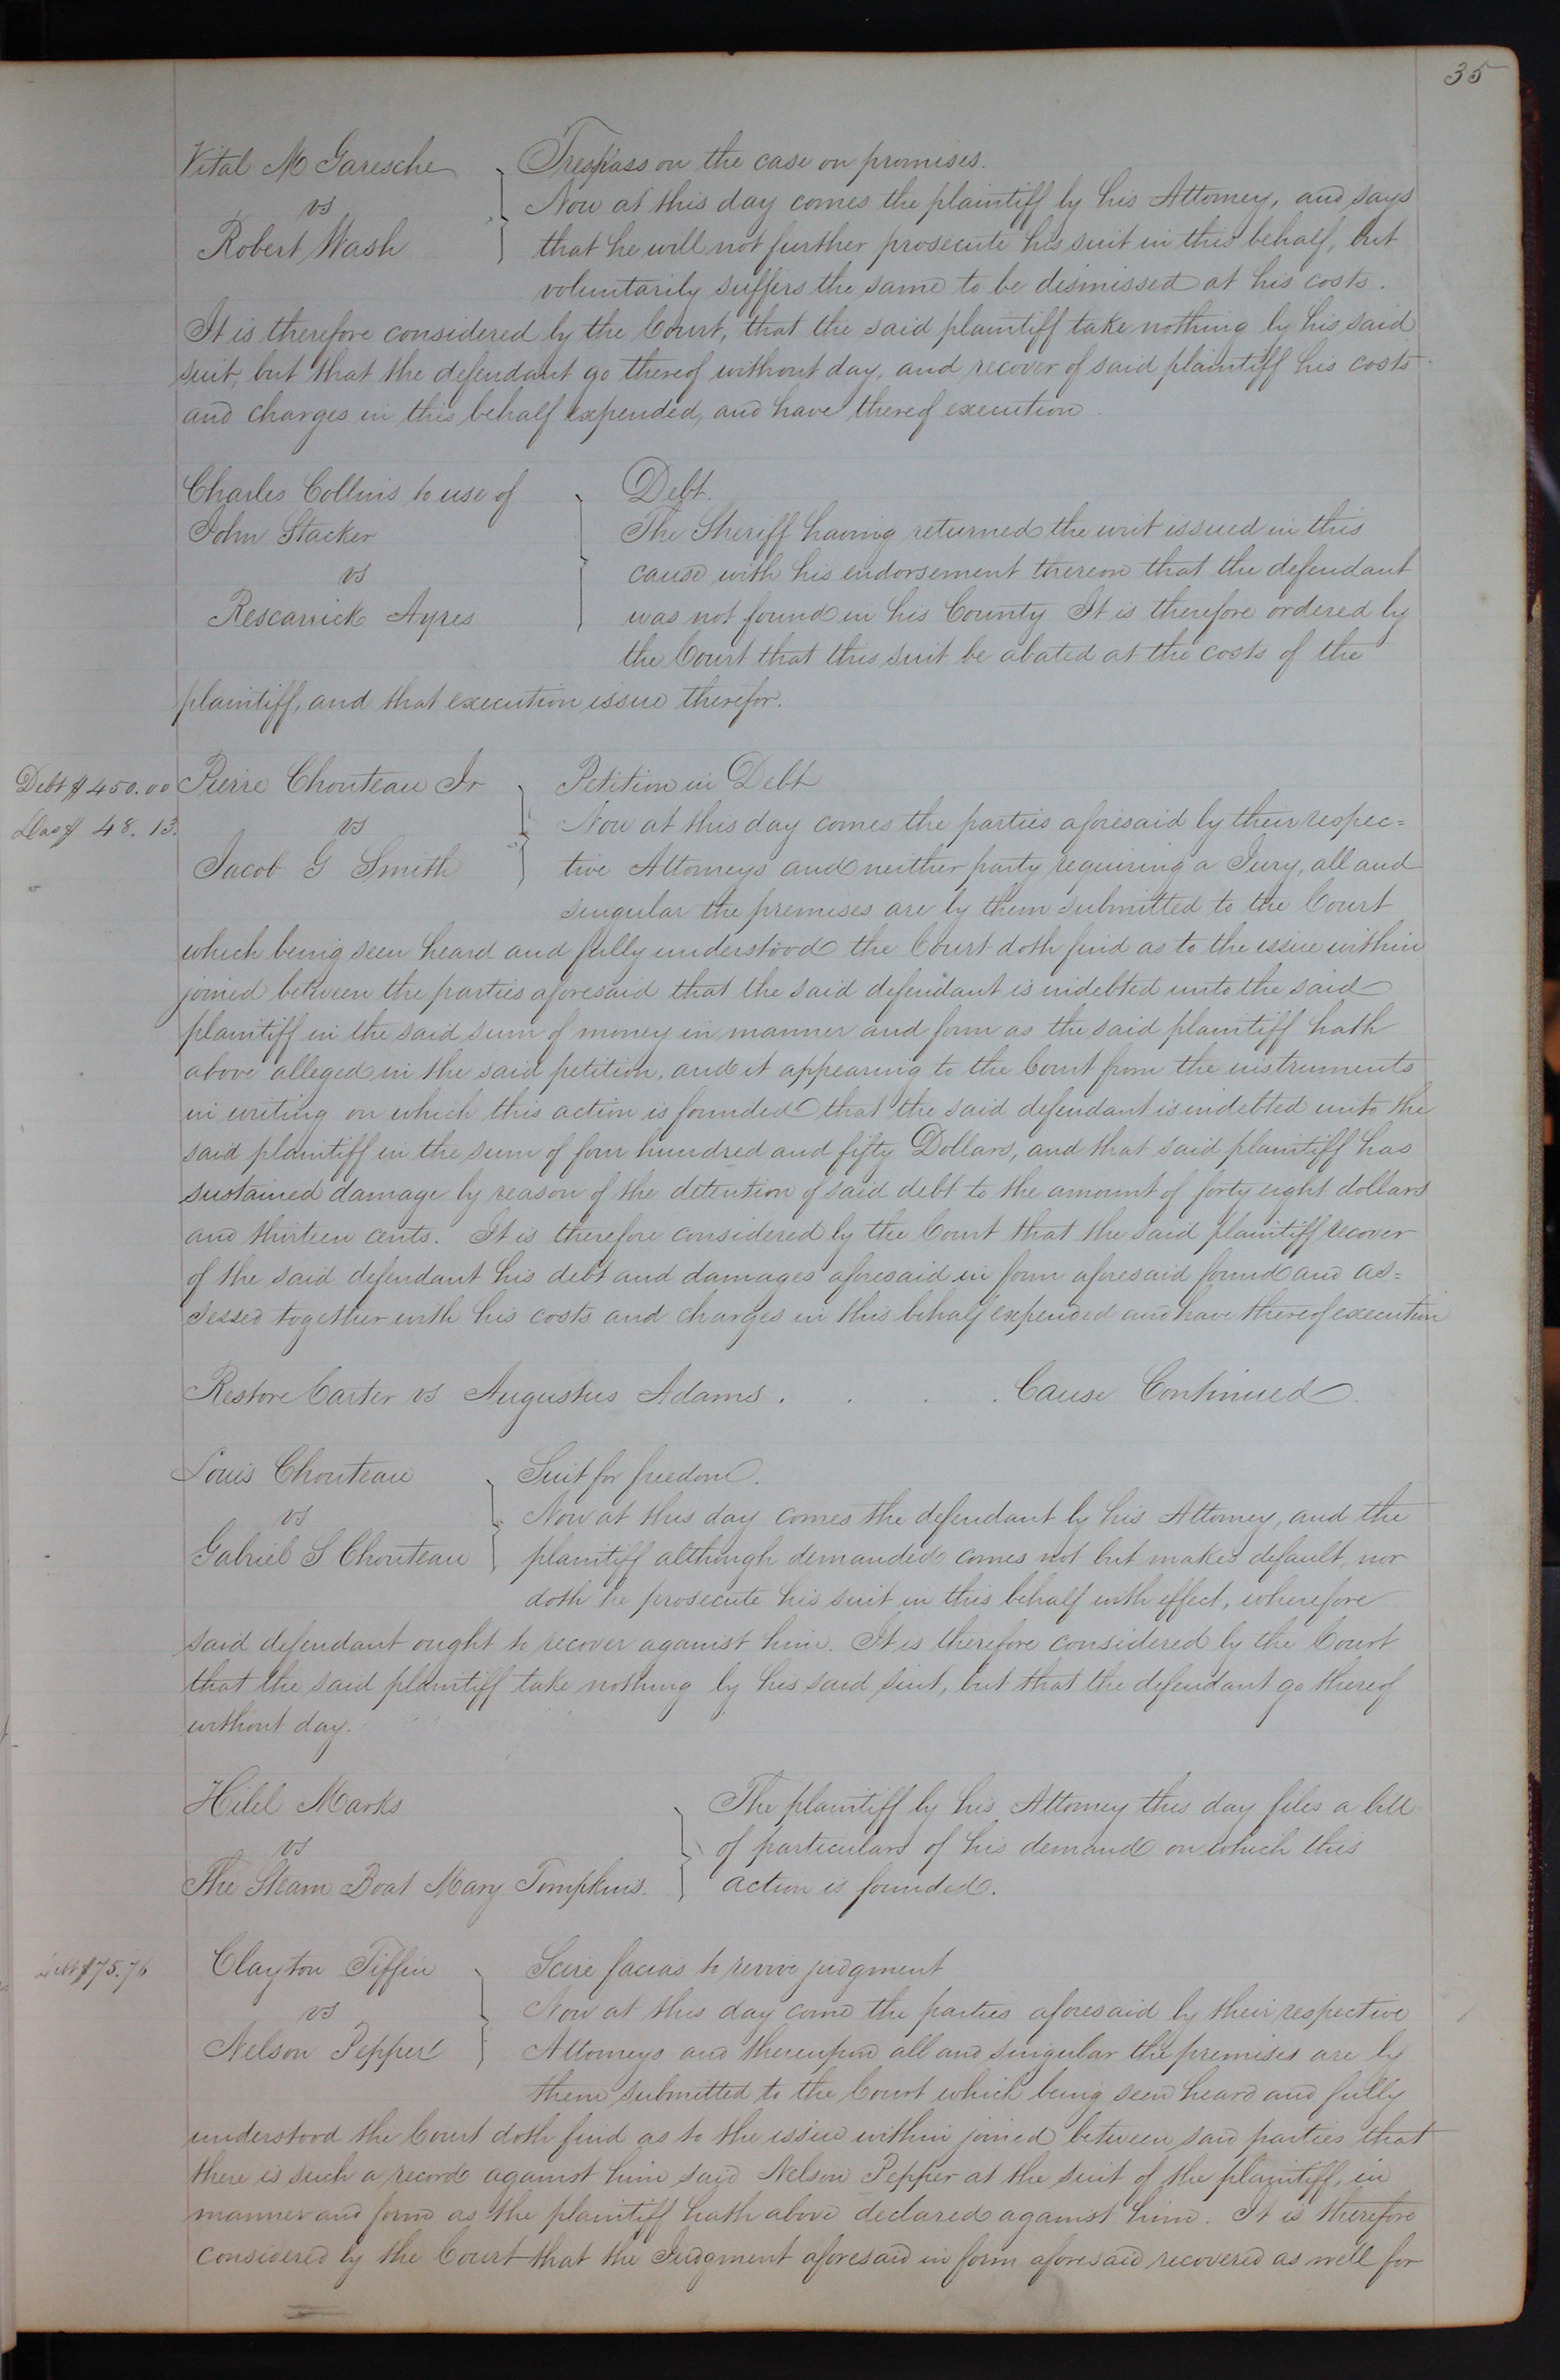 35
Vital M Garesche
vs
Robert Wash
Trespass on the case on promises.
Now at this day comes the plaintiff by his Attorney, and says
that he will not further prosecute his suit in this behalf, but
voluntarily suffers the same to be dismissed at his costs.
It is therefore considered by the Court, that the said plaintiff take nothing by his said
suit, but that the defendant go thereof without day, and recover of said plaintiff his costs
and charges in this behalf expended, and have thereof execution.
Charles Collins to use of
John Stacker
vs
Rescarrick Ayres
Debt.
The Sheriff having returned the writ issued in this
cause with his endorsement thereon that the defendant
was not found in his County It is therefore ordered by
the Court that this suit be abated at the costs of the
plaintiff, and that execution issue therefor.
Debt $450.00
Das $ 48.13.
Pierre Chouteau Jr
vs
Jacob G Smith
Petition in Debt
Now at this day comes the parties aforesaid by their respec=
tive Attorneys and neither party requiring a Jury, all and
singular the premises are by them submitted to the Court
which being seen heard and fully understood the Court doth find as to the issue within
joined between the parties aforesaid that the said defendant is indebted unto the said
plaintiff in the said sum of money in manner and form as the said plaintiff hath
above alleged in the said petition, and it appearing to the Court from the instruments
in writing on which this action is founded that the said defendant is indebted unto the
said plaintiff in the sum of four hundred and fifty Dollars, and that said plaintiff has
sustained damage by reason of the detention of said debt to the amount of forty eight dollars
and thirteen cents. It is therefore considered by the Court that the said plaintiff recover
of the said defendant his debt and damages aforesaid in form aforesaid found and as=
sessed together with his costs and charges in this behalf expended and have thereof execution
Restore Carter vs Augustus Adams . . . . Cause Continued.
Louis Chouteau
vs
Gabriel S Chouteau
Suit for freedom.
Now at this day comes the defendant by his Attorney, and the
plaintiff although demanded comes not but makes default, nor
doth he prosecute his suit in this behalf with effect, wherefore
said defendant ought to recover against him. It is therefore considered by the Court
that the said plaintiff take nothing by his said suit, but that the defendant go thereof
without day.
Hilel Marks
vs
The Steam Boat Mary Tompkins.
The plaintiff by his Attorney this day files a bill
of particulars of his demand on which this
action is founded.
Debt $75.76
Clayton Tiffin
vs
Nelson Pepper
Scire facias to revive judgment
Now at this day come the parties aforesaid by their respective
Attorneys and thereupon all and singular the premises are by
them submitted to the Court which being seen heard and fully
understood the Court doth find as to the issue within joined between said parties that
there is such a record against him said Nelson Pepper at the suit of the plaintiff, in
manner and form as the plaintiff hath above declared against him. It is therefore
considered by the Court that the Judgment aforesaid in form aforesaid recovered as well for